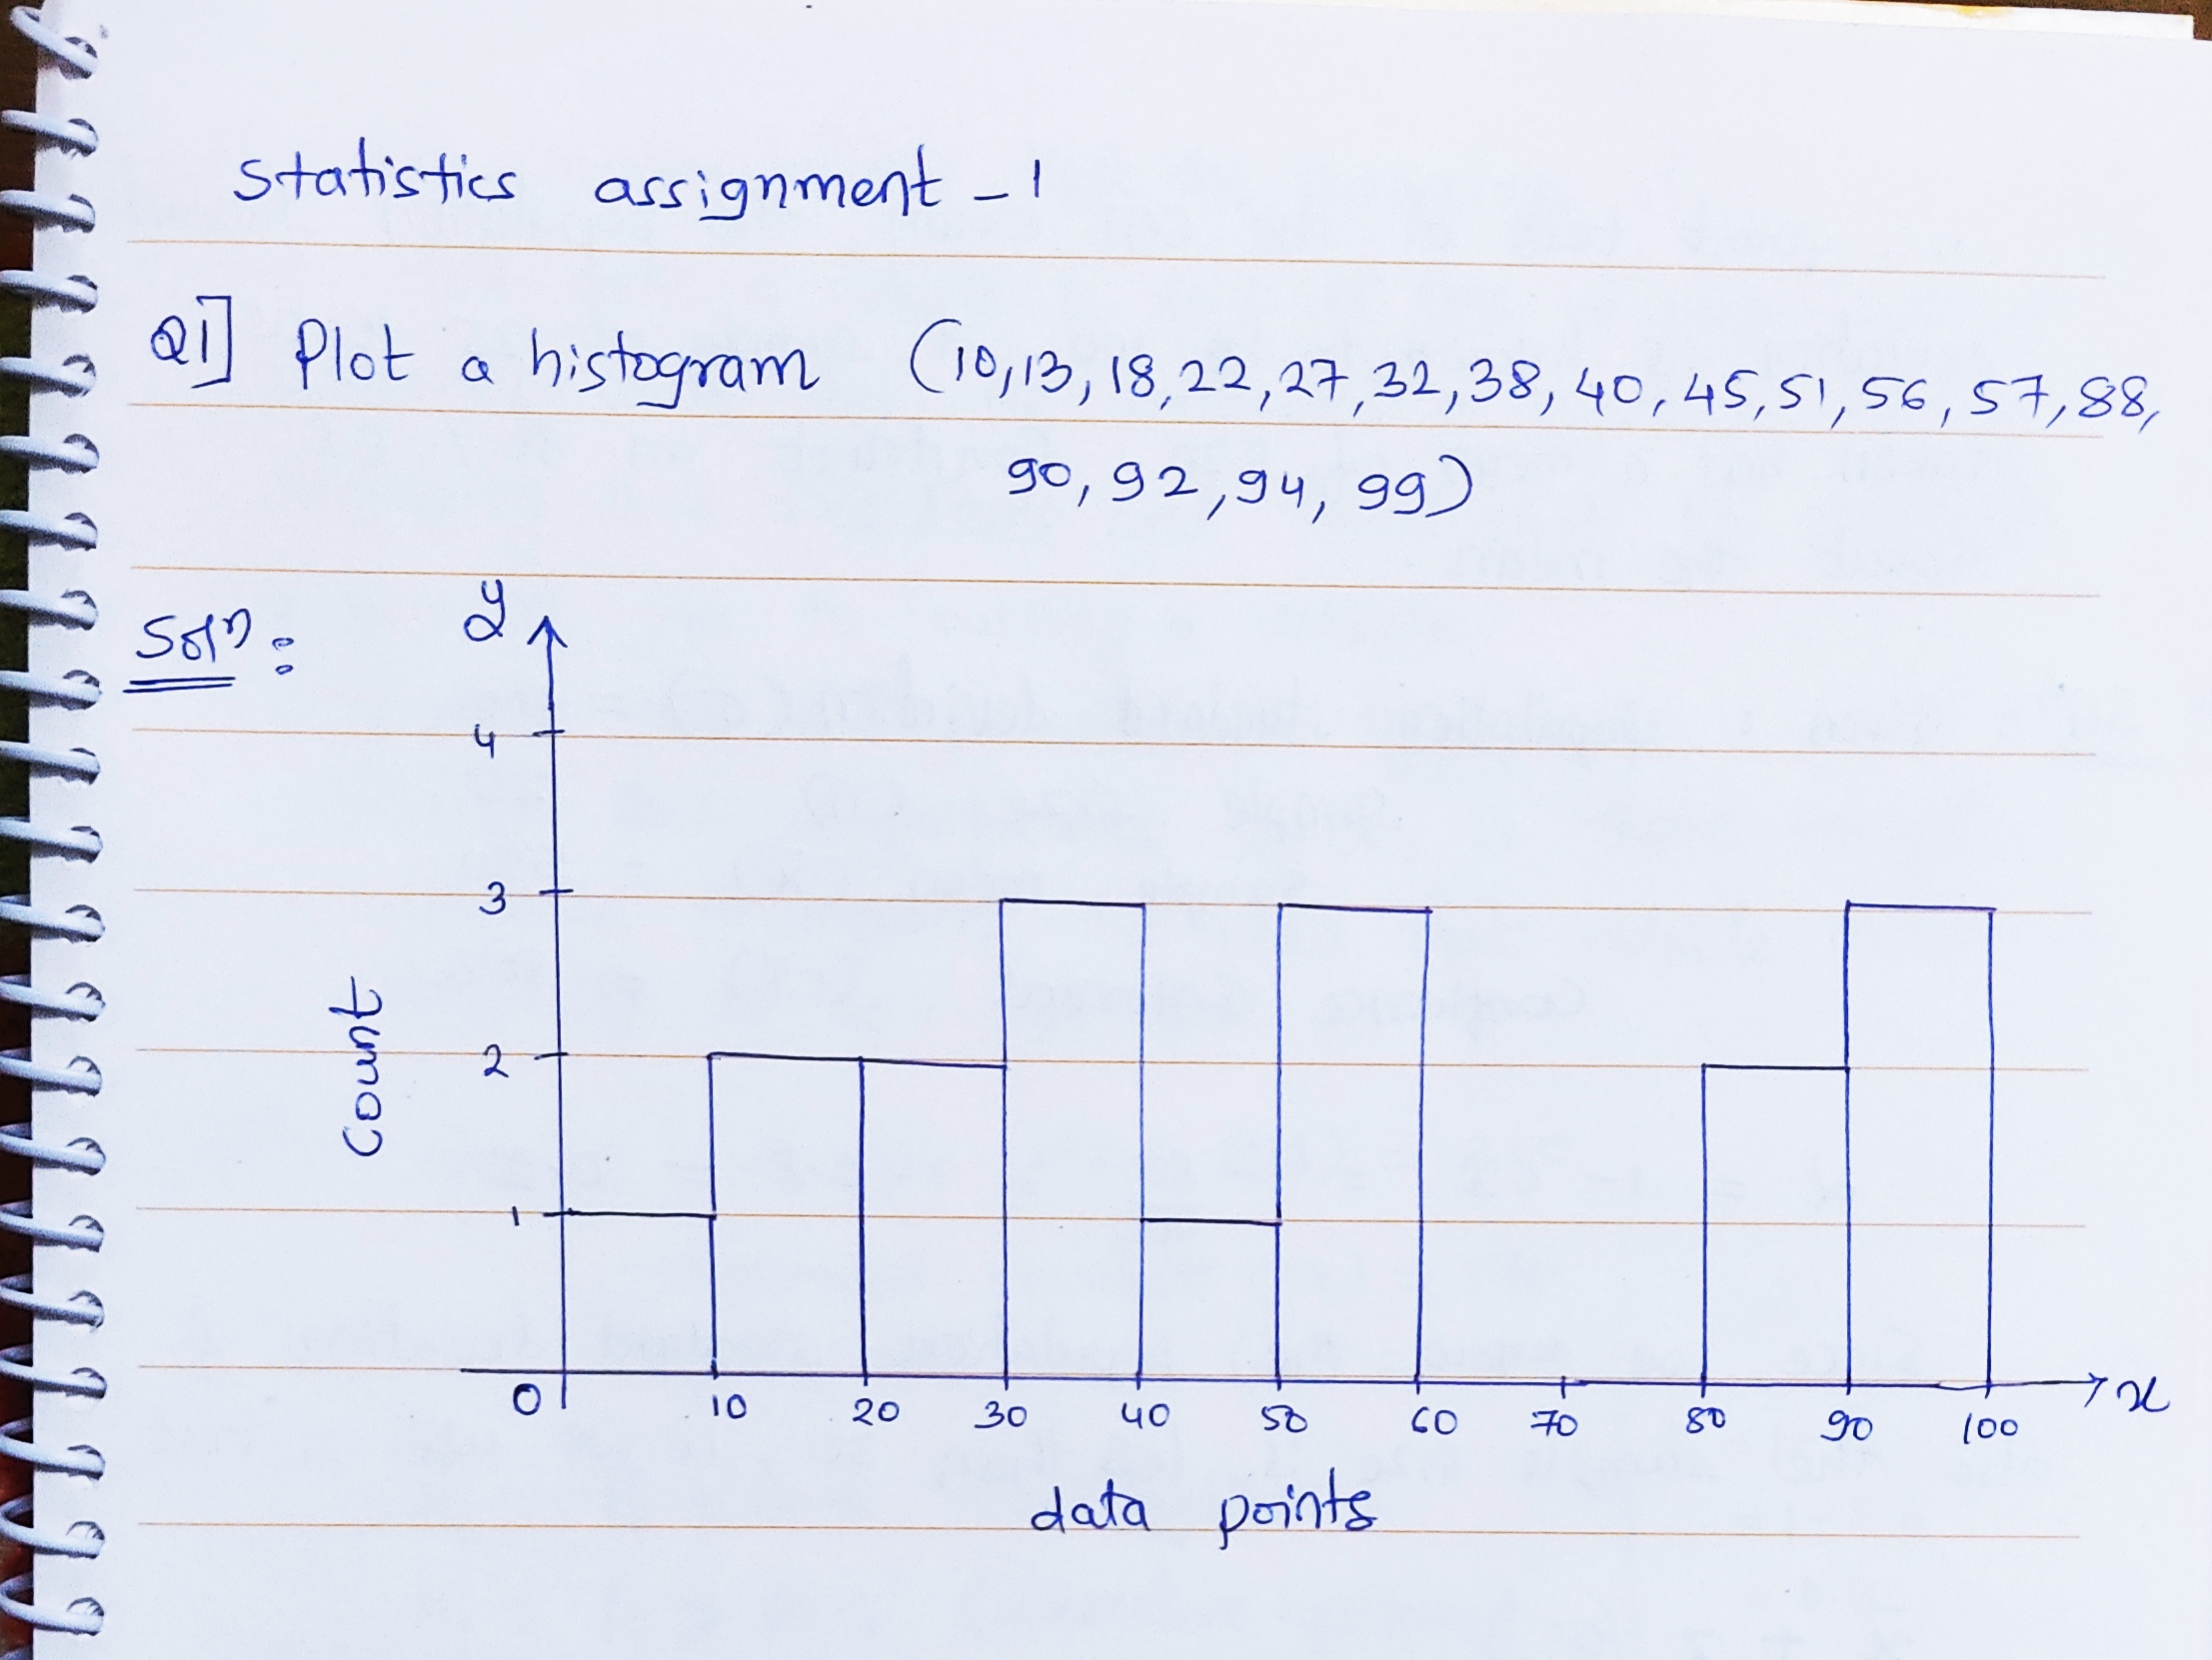 Statistics assignment - 1
Q1] Plot a histogram (10, 13, 18, 22, 27, 32, 38, 40, 45, 51, 56, 57, 88,
90, 92, 94, 99)
Solⁿ :
y
4
3
2
1
Count
0 10 20 30 40 50 60 70 80 90 100 x
data points